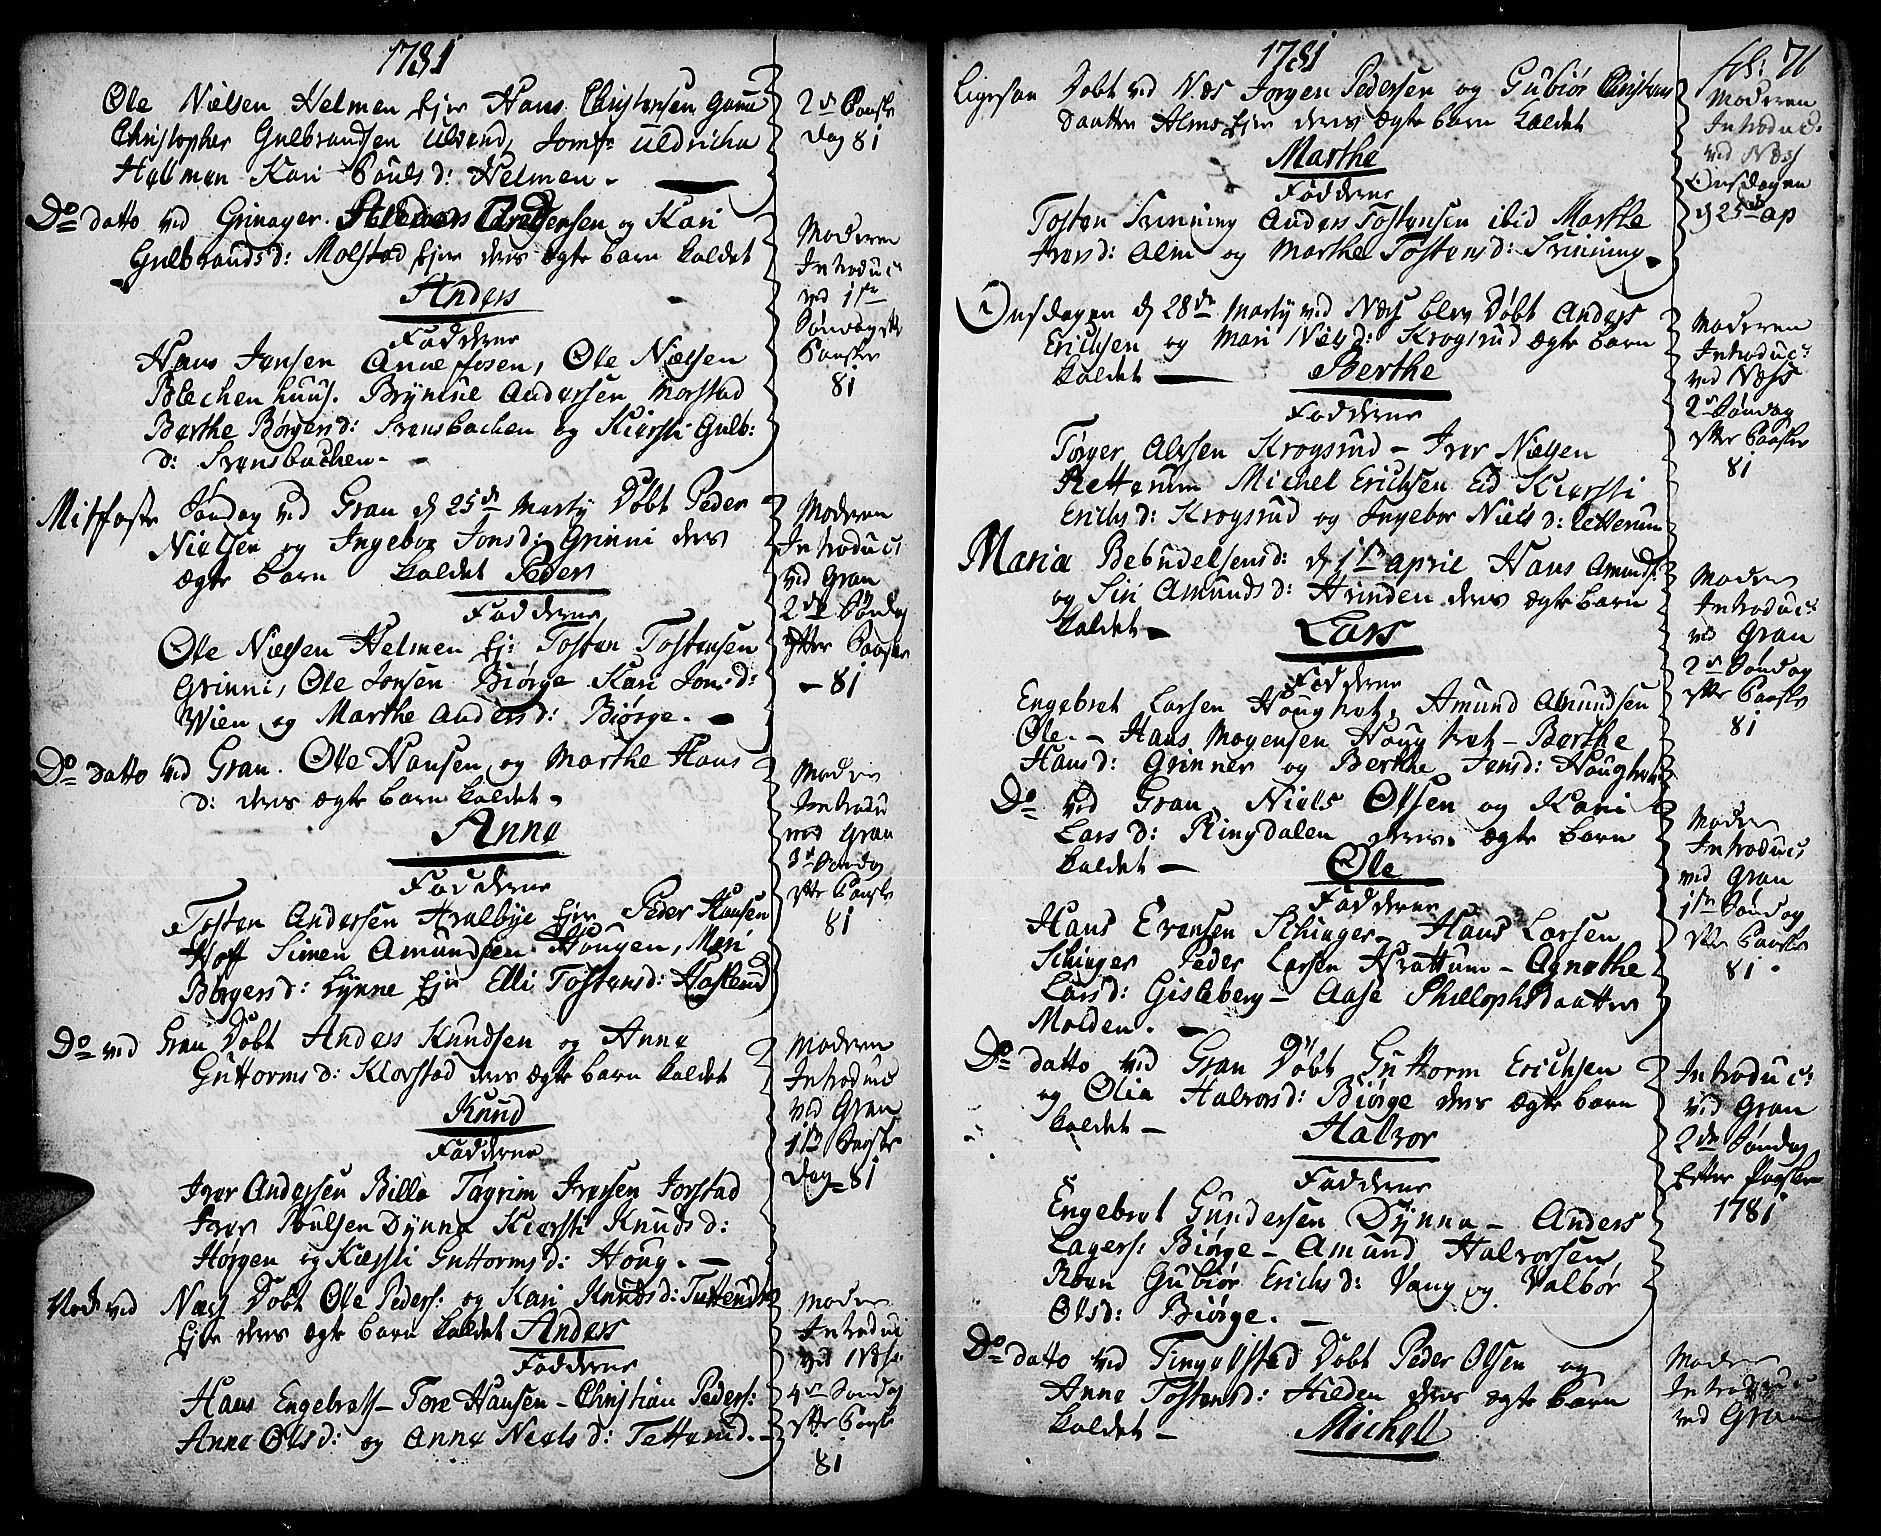 1781
Ole Nielsen Helmen Ejer Hans Christensen
Christopher Gulbrandsen Ulvend, Jomfr Uldricha
Helmen Kari Poulsd: Helmen.
2dn Paaske
Dag 81
Do datto ved Grinager. og Kari
Gulbrandsd: Molstad Ejer deris ægte barn kaldet
Anders
Fadderne
Hans Jensen Ole Nielsen
Blechenhuus. Brynnil Andersen Morstad
Berthe Børgersd: Svensbachen og Kiersti Gulb:
d: Svensbachen.
Moderen
Introduc:
ved 1ste
Søndag efter
Paaske
81
Mitfaste Søndag ved Gran d 25de Marty Døbt Peder
Nielsen og Ingebor Jonsd: Grinni deres
ægte barn kaldet Peder
Fadderne
Ole Nielsen Helmen Ej: Tosten Tostensen
Grinni, Ole Jonsen Biørge Kari Jonsd:
Wien og Marthe Andersd: Biørge.
Moderen
Introduc:
ved Gran
2den Søndag
efter Paaske
81
Do datto ved Gran. Ole Hansen og Marthe Hans
d: deres ægte barn kaldet
Anne
Fadderne
Tosten Andersen Hvalbye Ejer Peder Hansen
Hoff Simen Amundsen Hougen, Mari
Børgersd: Lynne Ejer Elli Tostensd: Haslund
Moderen
Introdu
ved Gran
3d Søndag
efter Paaske
81
Do ved Gran Døbt Anders Knudsen og Anne
Guttormsd: Klovstad deres ægte barn kaldet
Knud
Fadderne
Iver Andersen Bille Torgrim Iversen Jorstad
Iver Poulsen Dynna Kiersti Knudsd:
Horgen og Kiersti Guttormsd: Houg.
Moderen
Introduc
ved Gran
1ste Paaske
Dag 81
ved Næss Døbt Ole Peders: og Kari Knudsd: Tuttend
Ejer deres ægte barn kaldet Anders
Fadderne
Hans Engebrets Tore Hansen Christian Peders:
Anne Olsd: og Anne Nielsd:
Moderen
Introduc
ved Næss
4de Søndag
efter Paaske
81
1781
fol: 71
Ligesaa Døbt ved Næs Jorgen Pedersen og Gubiør Christens
Daatter Alms Ejer deris ægte barn kaldet
Marthe
Fadderne
Tosten Svinning Anders Tostensen ibid Marthe
Iversd: Alm og Marthe Tostensd: Svinning.
Moderen
Introduc:
ved Næss
Onsdagen
d 25de ap
Onsdagen d 28de Marty ved Næs blev Døbt Anders
Erichsen og Mari Nielsd: Krogsrud ægte barn
kaldet Berthe
Fadderne
Torger Alfsen Krogsrud Iver Nielsen
Michel Erichsen Eid Kiersti
Erichsd: Krogsrud og Ingebor Nielsd:
Moderen
Introduc:
ved Næss
2d Søndag
efter Paaske
81
Maria Bebudelsensd: d 1ste april Hans Amunds:
og Siri Amundsd: Hvinden deres ægte barn
kaldet Lars
Fadderne
Engebret Larsen Amund Amundsen
Øle. Hans Mogensen Berthe
Hansd: Grinner og Berthe Jensd:
Moderen
Introduc:
ved Gran
2d Søndag
efter Paaske
81
Do ved Gran Niels Olsen og Kari
Larsd: Ringdalen deres ægte barn
kaldet Ole
Fadderne
Hans Evensen Schiager Hans Larsen
Schiager Peder Larsen Hvattum Agnethe
Larsd: Gisleberg Aase Phillophs daatter
Molden.
Moder
Introduc:
ved Gran
1ste Søndag
efter Paaske
81.
Do datto ved Gran Døbt Guttorm Erichsen
og Olia Halvorsd: Biørge deres ægte barn
kaldet Halvor
Fadderne
Engebret Gundersen Dynna Anders
Lagers: Biørge Amund Halvorsen
Roen Gubiør Erichsd: Vang og Valbør
Olsd: Biørge.
Introduc:
ved Gran
2den Søndag
Efter Paaske
1781
Do datto ved Tingelstad Døbt Peder Olsen og
Anne Tostensd: Hilden deres ægte barn
kaldet Michell
Moder
Introduc
ved Gran